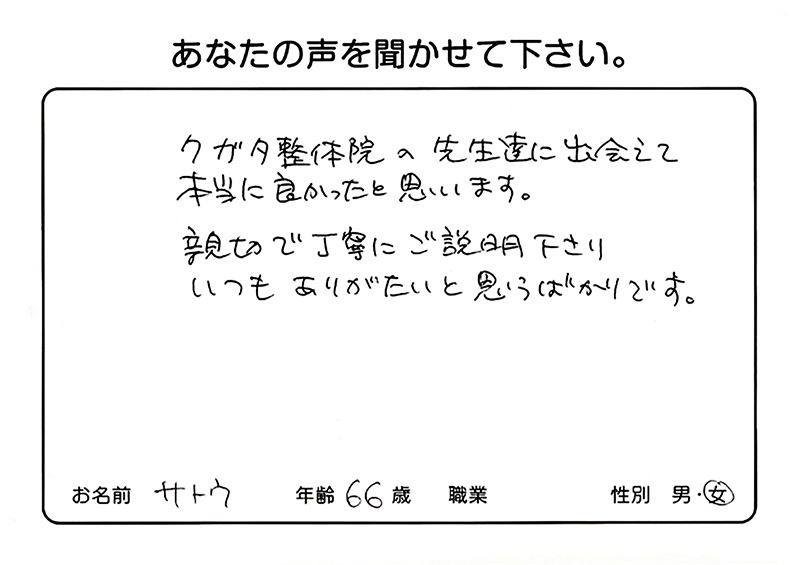 あなたの声を聞かせて下さい。
クガタ整体院の先生達に出会えて
本当に良かったと思いいます。
親切で丁寧にご説明下さり
いつもありがたいと思いうばかりです。
お名前 サトウ 年齢 66 歳 職業 性別 男・女